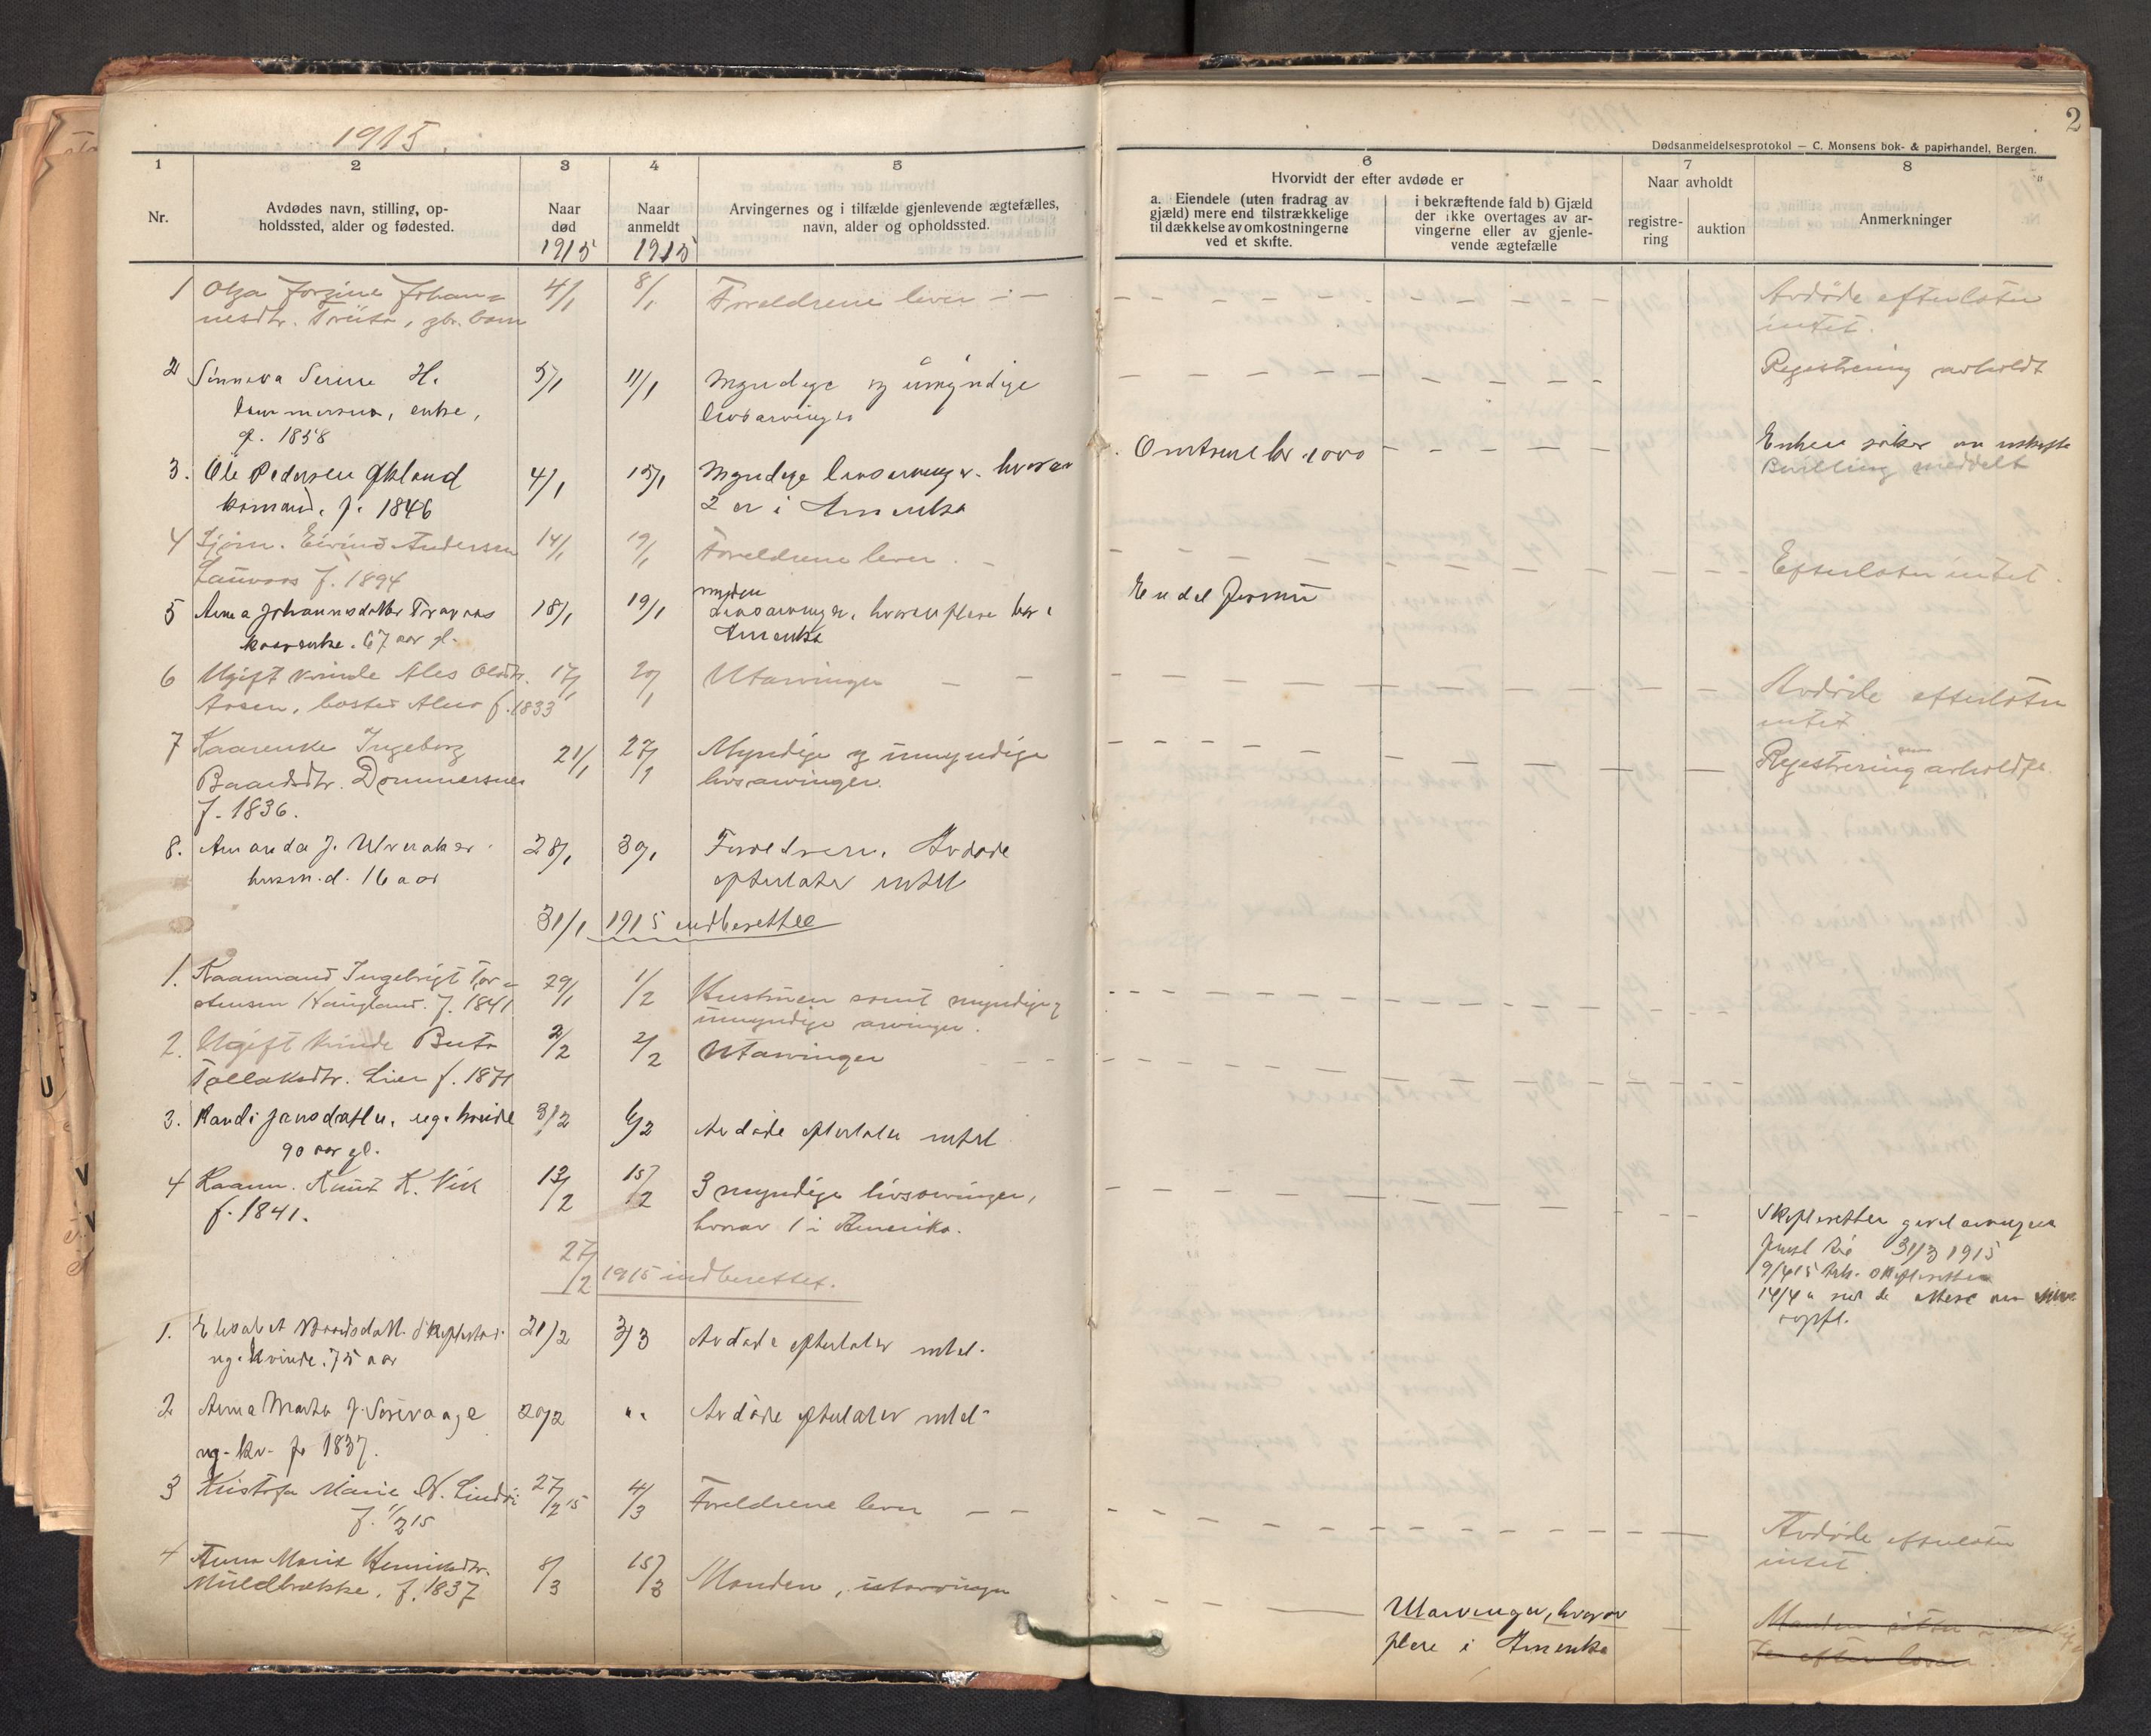 1915.
2
Dødsanmeldelsesprotokol — C. Monsens bok- & papirhandel, Bergen.
1
2
3
4
5
6
7
8
Nr.
Avdødes navn, stilling, op-
holdssted, alder og fødested.
Naar
død
1915
Naar
anmeldt
1915
Arvingernes og i tilfælde gjenlevende ægtefælles,
navn, alder og opholdssted.
Hvorvidt der efter avdøde er
a. Eiendele (uten fradrag av
gjæld) mere end tilstrækkelige
til dækkelse av omkostningerne
ved et skifte.
i bekræftende fald b) Gjæld
der ikke overtages av ar-
vingerne eller av gjenle-
vende ægtefælle
Naar avholdt
registre-
ring
auktion
Anmerkninger
1 Olga Jorgine Johan-
nesdtr. gbr. barn
4/1 8/1 Foreldrene lever - -
Avdøde efterlater
intet.
2 Sinneva Serine H.
enke,
f. 1858
5/1 11/1 Myndige og umyndige
livsarvinger
Registrering avholdt
3. Ole Pedersen Økland
kaarmand, f. 1846
4/1 15/1 Myndige livsarvinger. hvorav
2 er i Amerika
Omtrent kr. 1000
Enken søker om uskifte
Bevilling meddelt
4 Eivind Andersen
f. 1894
14/1 19/1 Foreldrene lever. -
Efterlater intet.
5 Anna Johannesdatter
kaarenke. 67 aar gl.
18/1 19/1 myndige
Livsarvinger, hvorav flere bor i
Amerika
En del
6 Ugift kvinde Ales Olsdtr.
Aasen, f. 1833
17/1 20/1 Utarvinger - -
Avdøde efterlater
intet.
7 Kaarenke Ingeborg
Baardsdtr. Dommersnes
f. 1836.
21/1 27/1 Myndige og umyndige
livsarvinger.
Registrering avholdt
8. Amanda J. Utvaaker
husm.d. 16 aar
28/1 30/1 Foreldrene. Avdøde
efterlater intet
31/1 1915 indberettet
1. Kaarmand Ingebrigt Tor-
stensen Haugland. f. 1841
29/1 1/2 Hustruen samt myndige og
umyndige arvinger.
2. Ugift kvinde Berta
Tollaksdtr. Lier f. 1871
2/2 2/2 Utarvinger
3. Randi Jansdatter, ug. kvinde
90 aar gl.
3/2 6/2 Avdøde efterlater intet
4 Kaarm. Knut K. Vik
f. 1841.
13/2 15/2 3 myndige livsarvinger,
hvorav 1 i Amerika.
Skifteretten gavd arvingene
frist til 31/3 1915
27/2 1915 indberettet.
1. Elisabet
ug. kvinde. 75 aar
21/2 3/3 Avdøde efterlater intet.
2 Anna Marta J. Sørvaage
ug. kv. f. 1837.
20/2 " Avdøde efterlater intet
3 Kristofa Marie N. Lindøi
f. 1/2 15
27/2 15 4/3 Foreldrene lever - -
Avdøde efterlater
intet.
4 Anna Marie Henriksdtr.
Muldbrække, f. 1837
8/3 15/3 Manden, utarvinger
Utarvinger, hvorav
flere i Amerika
Manden sitter
efter loven.